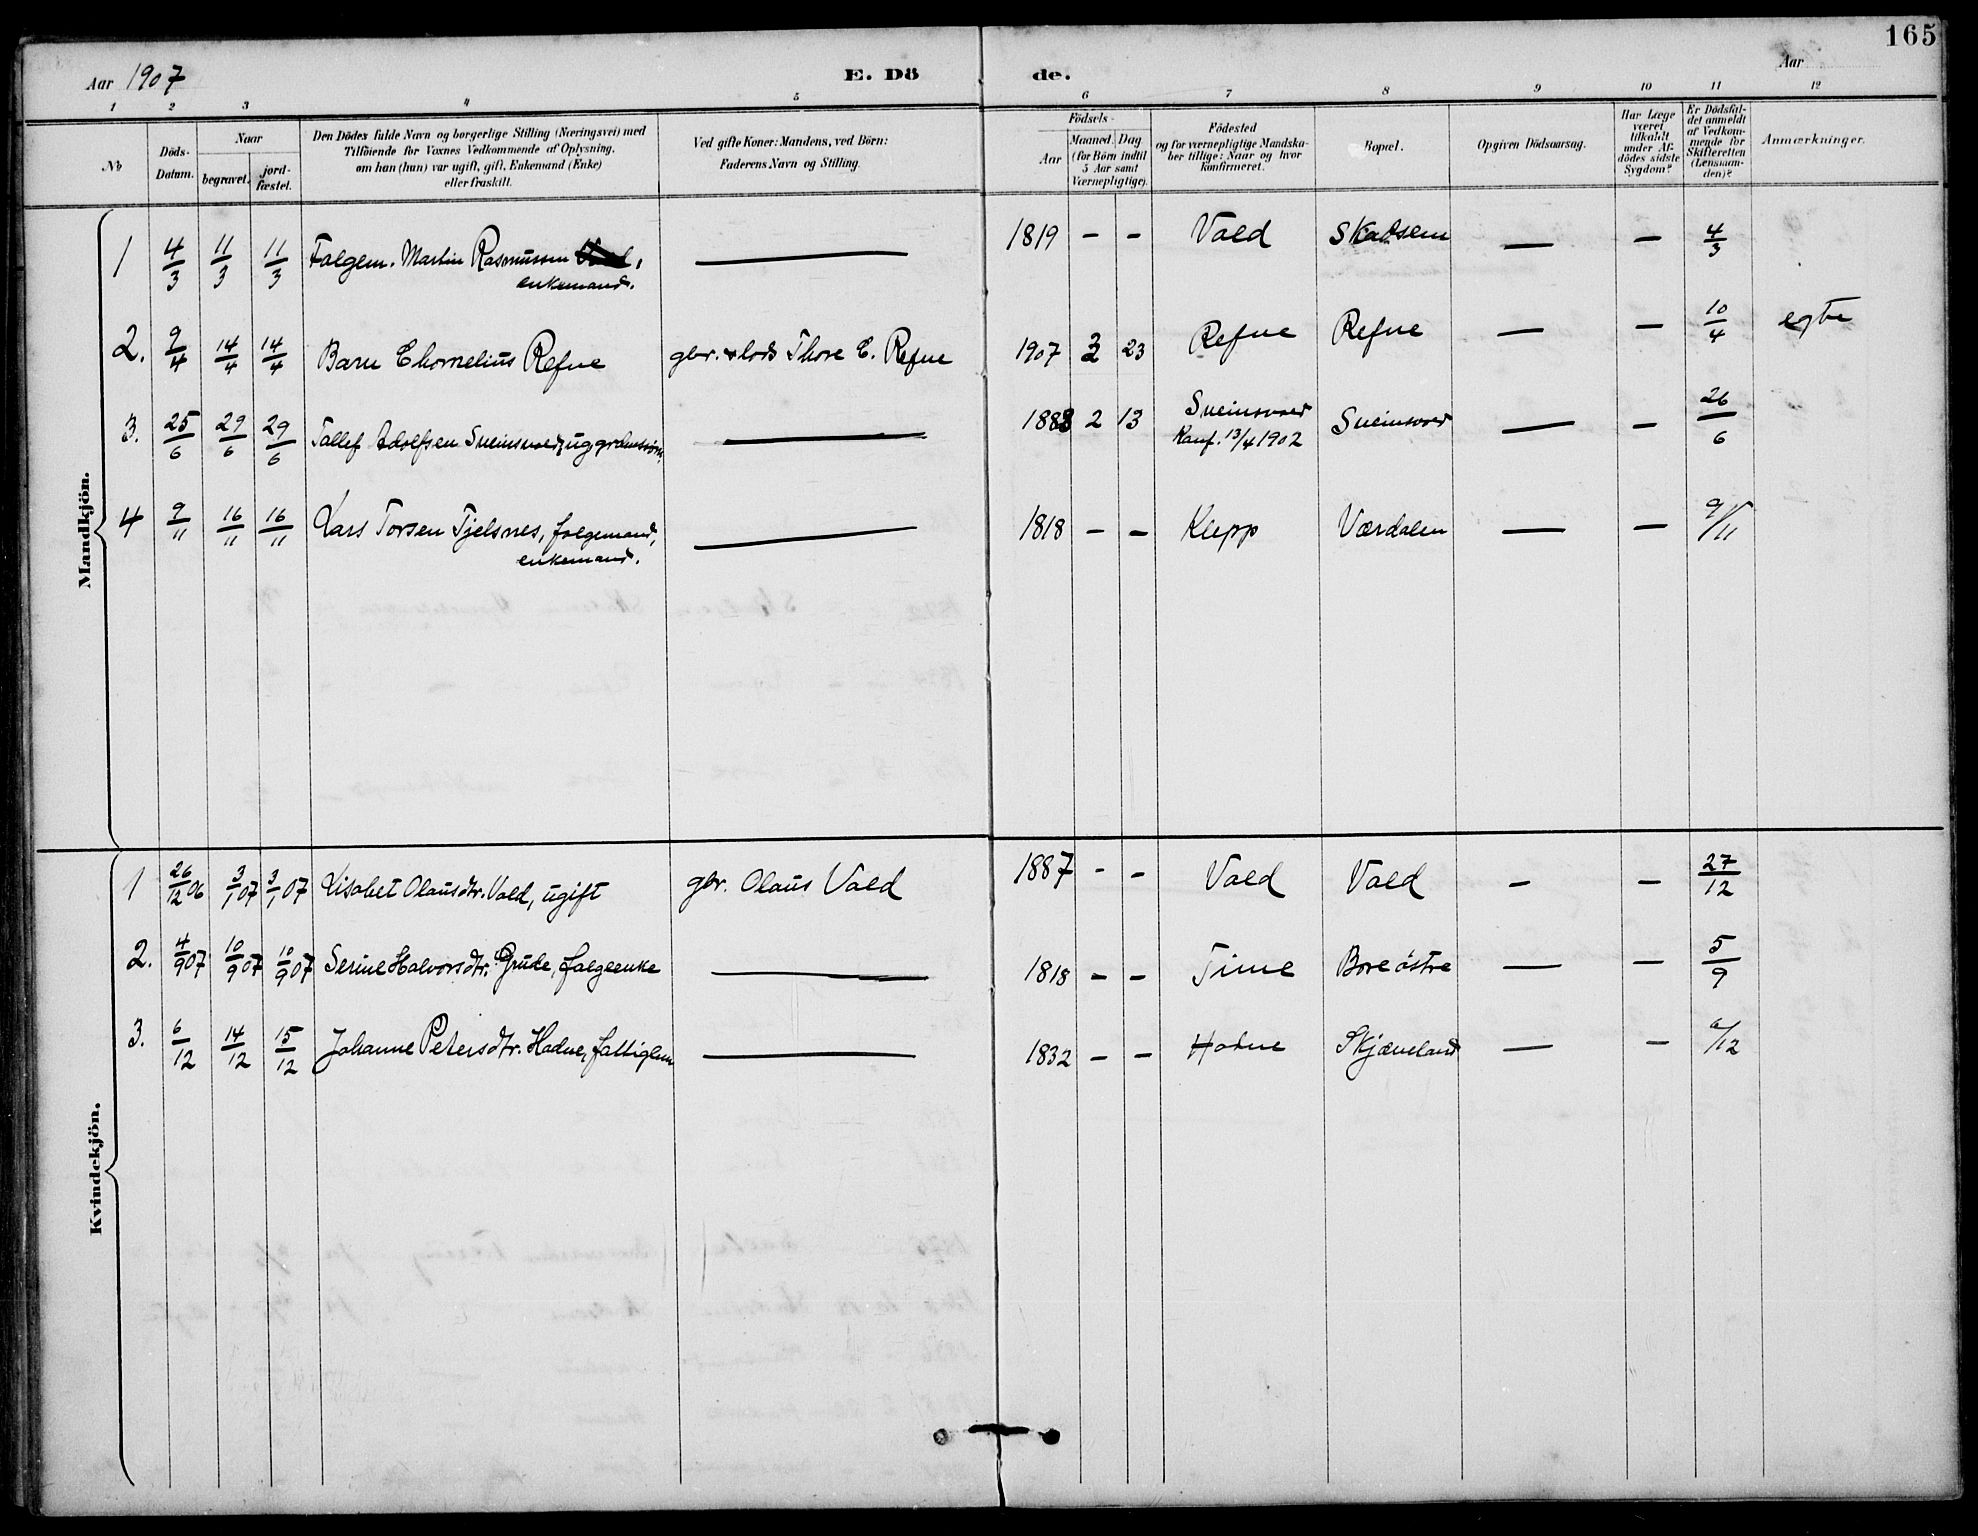 165
Aar 1907
E. Dö
de.
Aar
1 2 3 4 5 6 7 8 9 10 11 12
No
Döds-
Datum.
Naar
begravet.
jord-
fæstet.
Den Dödes fulde Navn og borgerlige Stilling (Næringsvei) med
Tilföiende for Voxnes Vedkommende af Oplysning,
om han (hun) var ugift, gift, Enkemand (Enke)
eller fraskilt.
Ved gifte Koner: Mandens, ved Börn:
Faderens Navn og Stilling.
Födsels-
Aar
Maaned. Dag
(for Börn indtil
5 Aar samt
Værnepligtige).
Födested
og for værnepligtige Mandska-
ber tillige: Naar og hvor
Konfirmeret.
Bopæl.
Opgiven Dödsaarsag.
Har Læge
været
tilkaldt
under Af-
dödes sidste
Sygdom?
Er Dödsfal-
det anmeldt
af Vedkom-
mende for
Skifteretten
(Lensman-
den)?
Anmærkninger.
Mandkjön.
1 4/3 11/3 11/3 Folgem. Martin Rasmussen, — 1819 - - Vold Skadsem — - 4/3
enkemand.
2. 9/4 14/4 14/4 Barn Chornelius Refne gbr. & lods Thore C. Refne 1907 3 23 Refne Refne — - 10/4 egte
3. 25/6 29/6 29/6 Tallef Adolfsen Sveinsvold, — 1888 2 13 Sveinsvold Sveinsvold — - 26/6
Konf. 13/4 1902
4 9/11 16/11 16/11 Lars Torsen Tjelsnes, folgemand, — 1818 - - Klepp Værdalen — - 9/11
enkemand.
Kvindekjön.
1 26/12 06 3/1 07 3/1 07 Lisabet Olausdtr. Vold, ugift gbr. Olaus Vold 1887 - - Vold Vold - - 27/12
2. 4/9 07 10/9 07 10/9 07 Serine Halvorsdtr. Grude, folgeenke — 1818 - - Time Bore östre — - 5/9
3. 6/12 14/12 15/12 Johanne Petersdtr. Hodne, fattiglem — 1832 - - Hodne Skjæveland — - 6/12